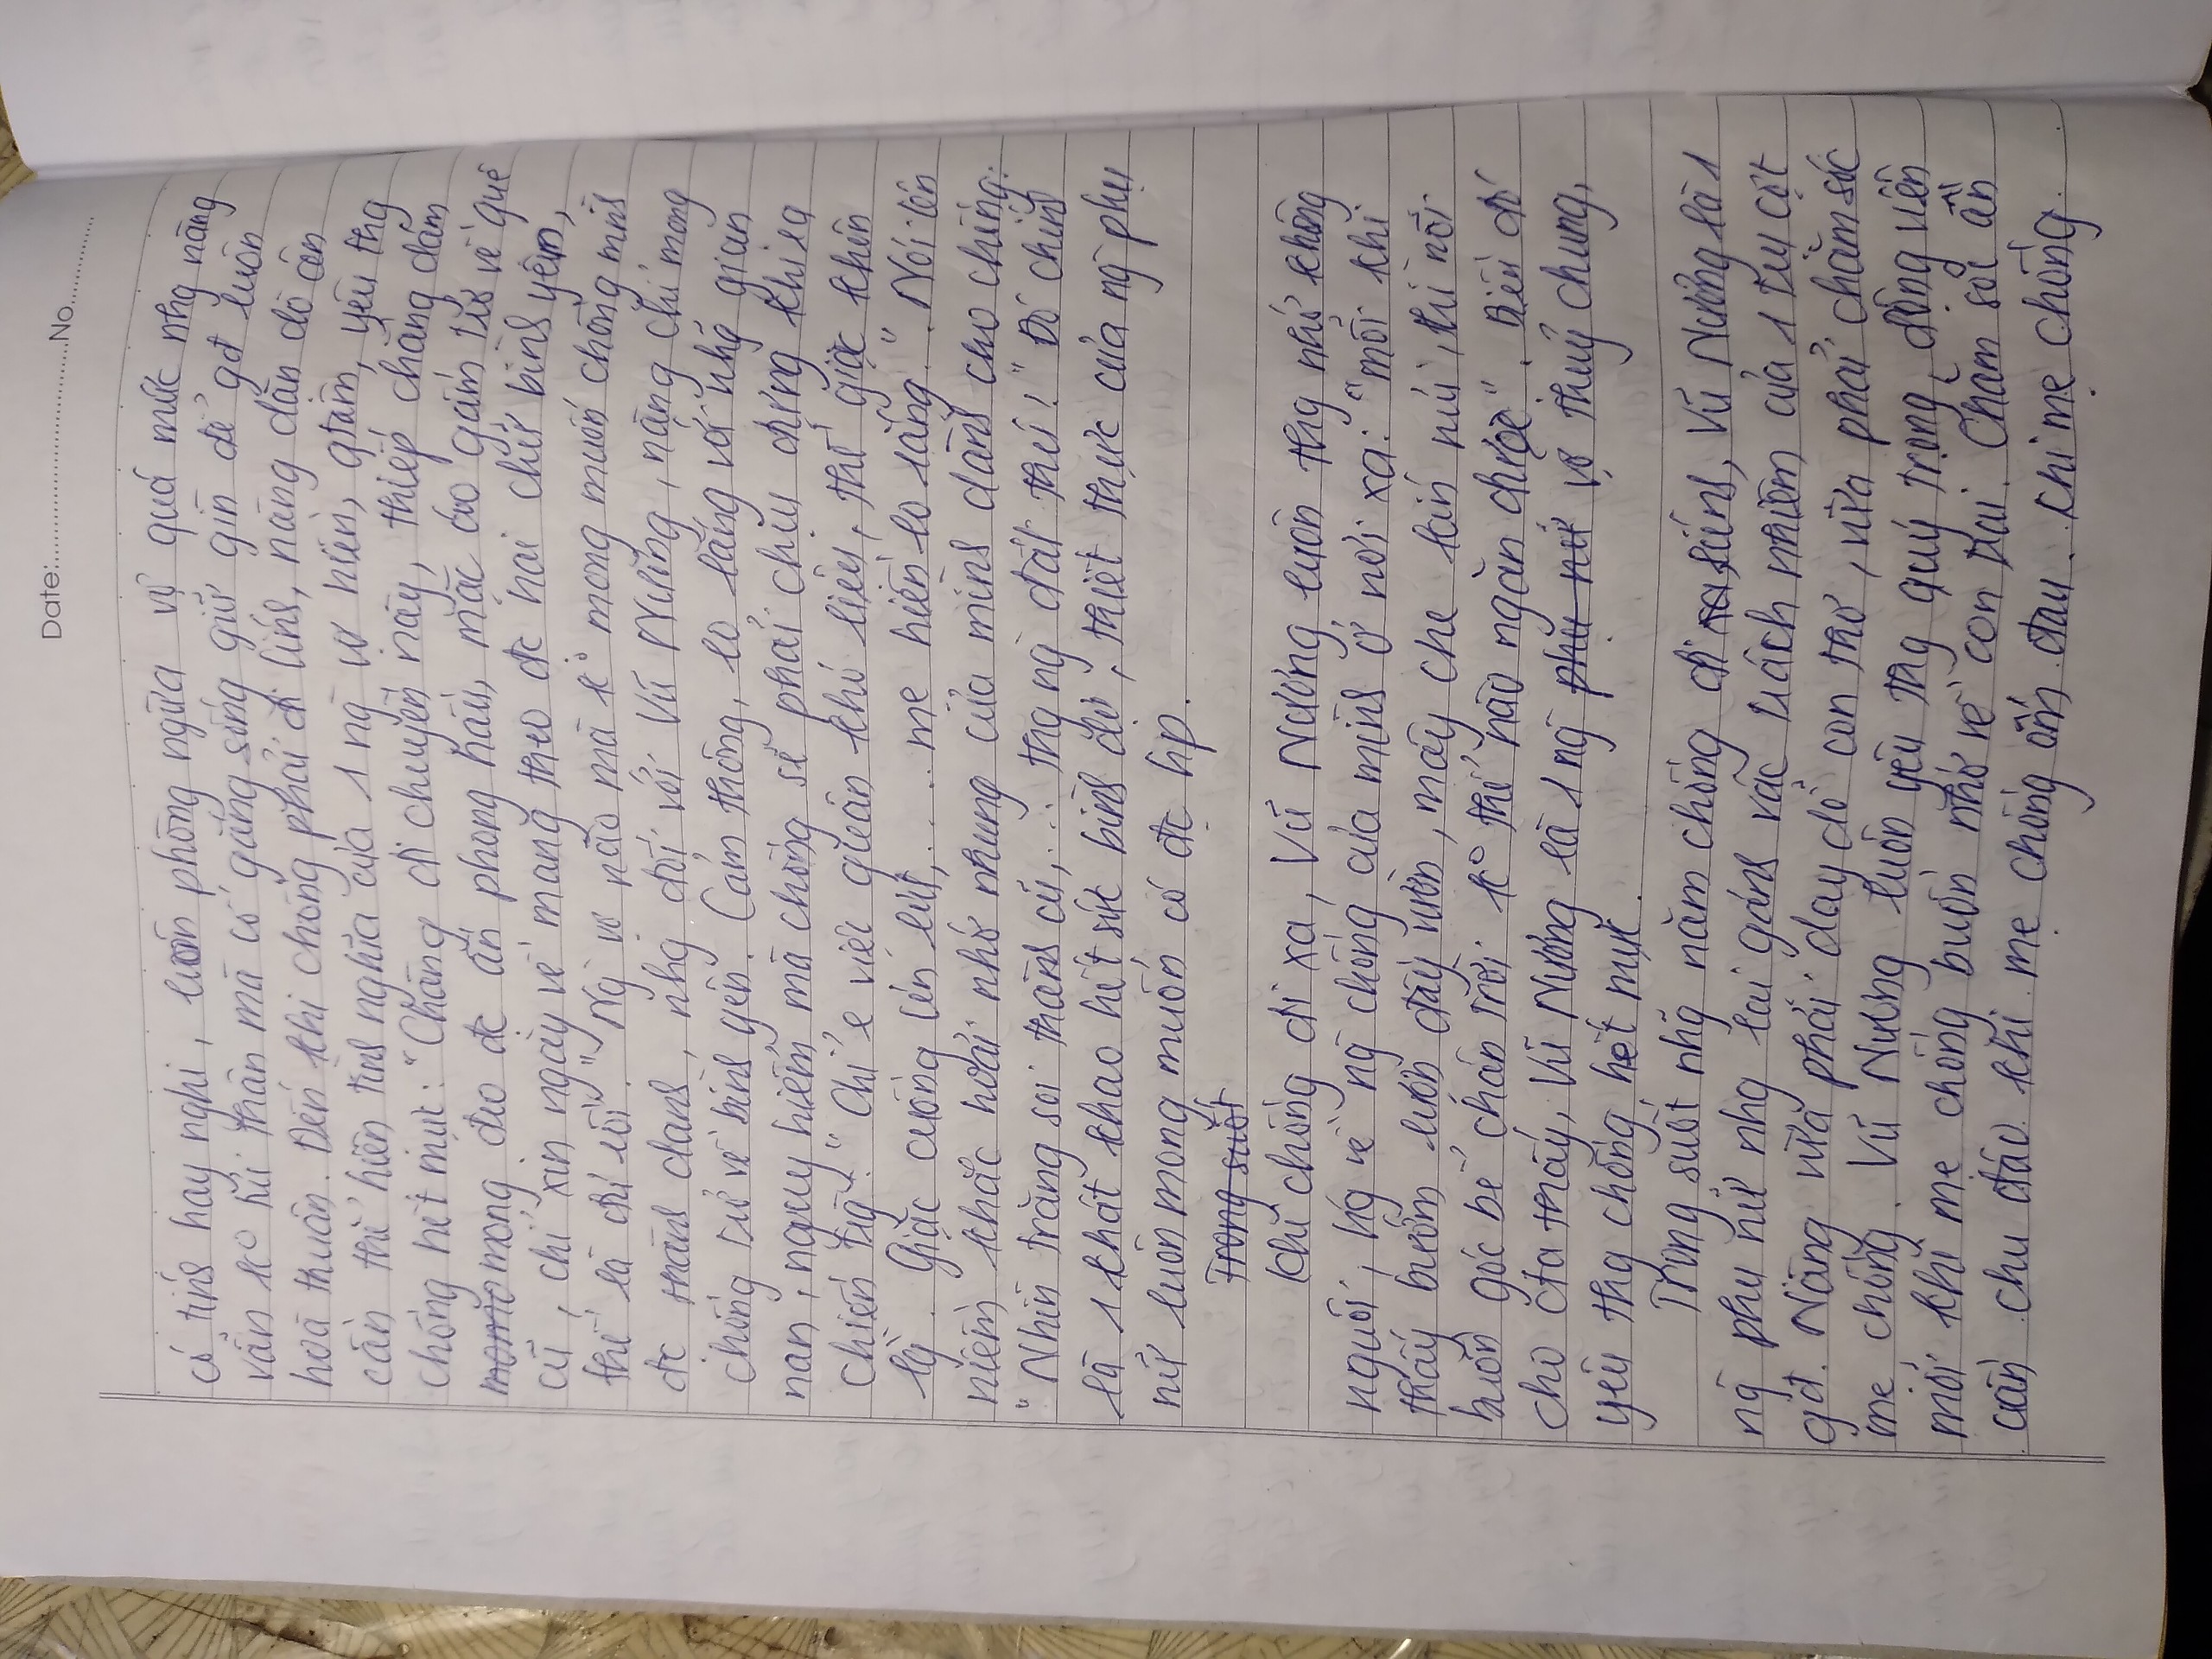 Date:..............................No.................
có tính hay nghi, luôn phòng ngừa vợ quá mức nhg nàng
vẫn ko hư thân mà cố gắng sống giữ gìn để gđ luôn
hoà thuận. Đến khi chồng phải đi lính, nàng dặn dò ân
cần thể hiện tình nghĩa của 1 ng vợ hiền, gtâm, yêu thg
chồng hết mực: "Chàng đi chuyến này, thiếp chẳng dám
mong đeo đc ấn phong hầu, mặc áo gấm trở về quê
cũ, chỉ xin ngày về mang theo đc hai chữ bình yên,
thế là đủ rồi". Ng vợ nào mà ko mong muốn chồng mình
đc thành danh, nhg đối với Vũ Nương, nàng chỉ mong
chồng trở về bình yên. Cảm thông, lo lắng vs nhg gian
nan, nguy hiểm mà chồng sẽ phải chịu đựng khi ra
chiến trg. "Chỉ e việc quân khó liệu, thế giặc khôn
lg. Giặc cuồng còn lẩn,... mẹ hiền lo lắng." Nói lên
niềm khắc hoải nhớ nhung của mình dành cho chồng:
"Nhìn trăng soi thành cũ,... thg ng đất thú!" Đó chính
là 1 khát khao hết sức bình dị, thiết thực của ng phụ
nữ luôn mong muốn có đc hp.
Trong suốt
Khi chồng đi xa, Vũ Nương luôn thg nhớ khôn
nguôi, hg về ng chồng của mình ở nơi xa: "mỗi khi
thấy bướm lượn đầy vườn, mây che kín núi, thì nỗi
buồn góc bể chân trời ko thể nào ngăn được". Điều đó
cho cta thấy, Vũ Nương là 1 ng phụ nữ vợ thuỷ chung,
yêu thg chồng hết mực.
Trong suốt nhg năm chồng đi xa lính, Vũ Nương là 1
ng phụ nữ nhg lại gánh vác trách nhiệm của 1 trụ cột
gđ. Nàng vừa phải dạy dỗ con thơ, vừa phải chăm sóc
mẹ chồng. Vũ Nương luôn yêu thg quý trọng, động viên
mỗi khi mẹ chồng buồn nhớ về con trai. Chăm sói ân
cần chu đáo khi mẹ chồng ốm đau. Khi mẹ chồng